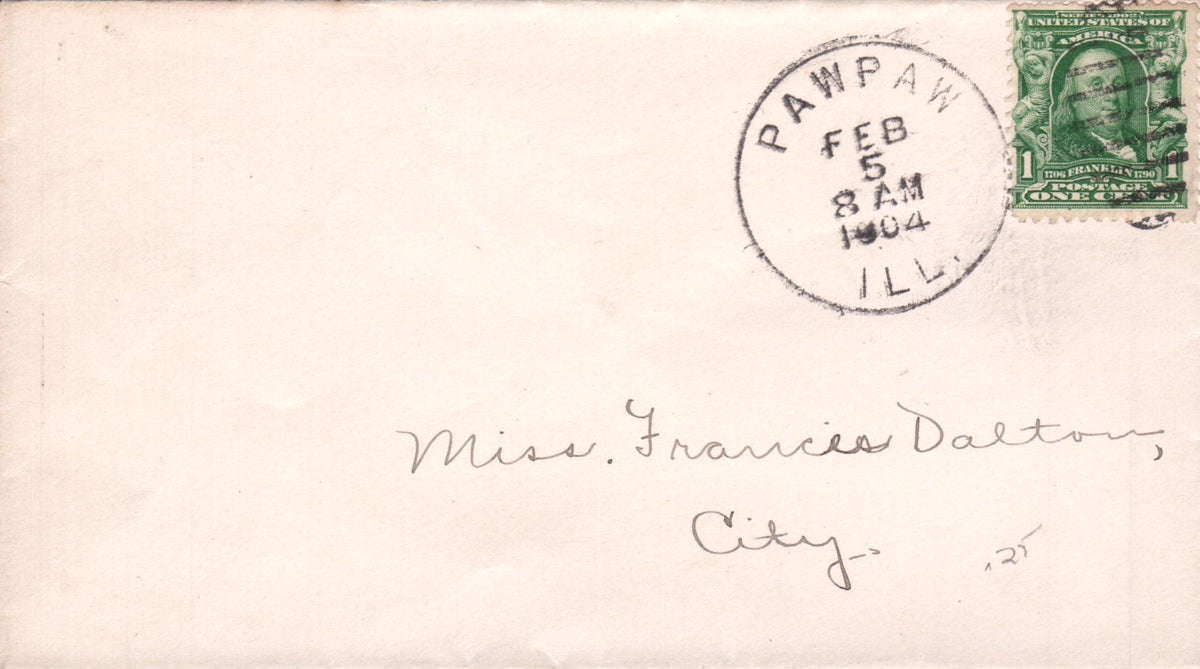 SERIES 1902
UNITED STATES OF
AMERICA
1 1
1706 FRANKLIN 1790
POSTAGE
ONE CENT
PAWPAW
FEB
5
8 AM
1904
ILL.
Miss. Francis Dalton,
City.
.25